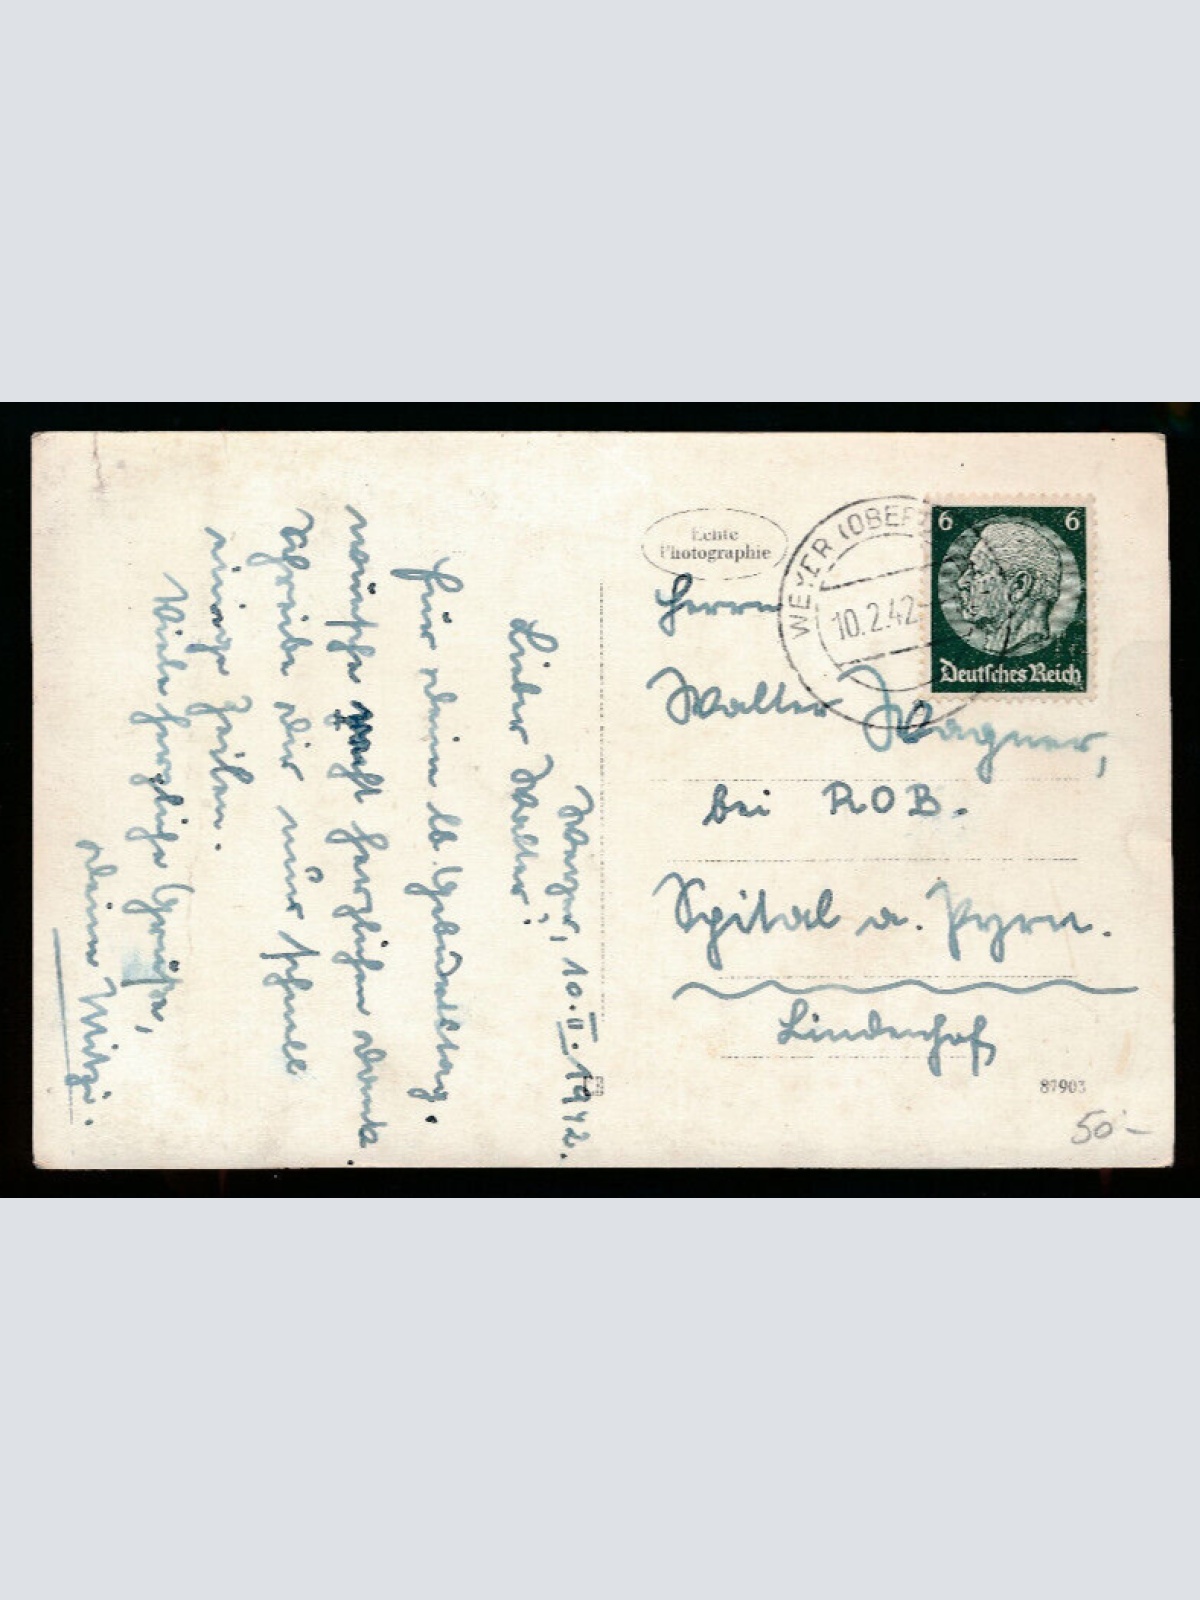 Echte
Photographie
WEYER (OBER
10.2.42
6 6
Deutsches Reich
Herrn
Walter Wagner,
bei ROB.
Spital a. Pyrn.
Lindenhof
87903
50.-
Weyer, 10.II.1942.
Lieber Walter!
Für deine lb. Geburtstag-
wünsche recht herzlichen Dank.
Schreibe dir nur schnell
einige Zeilen.
Viele herzliche Grüße,
deine Mitzi.